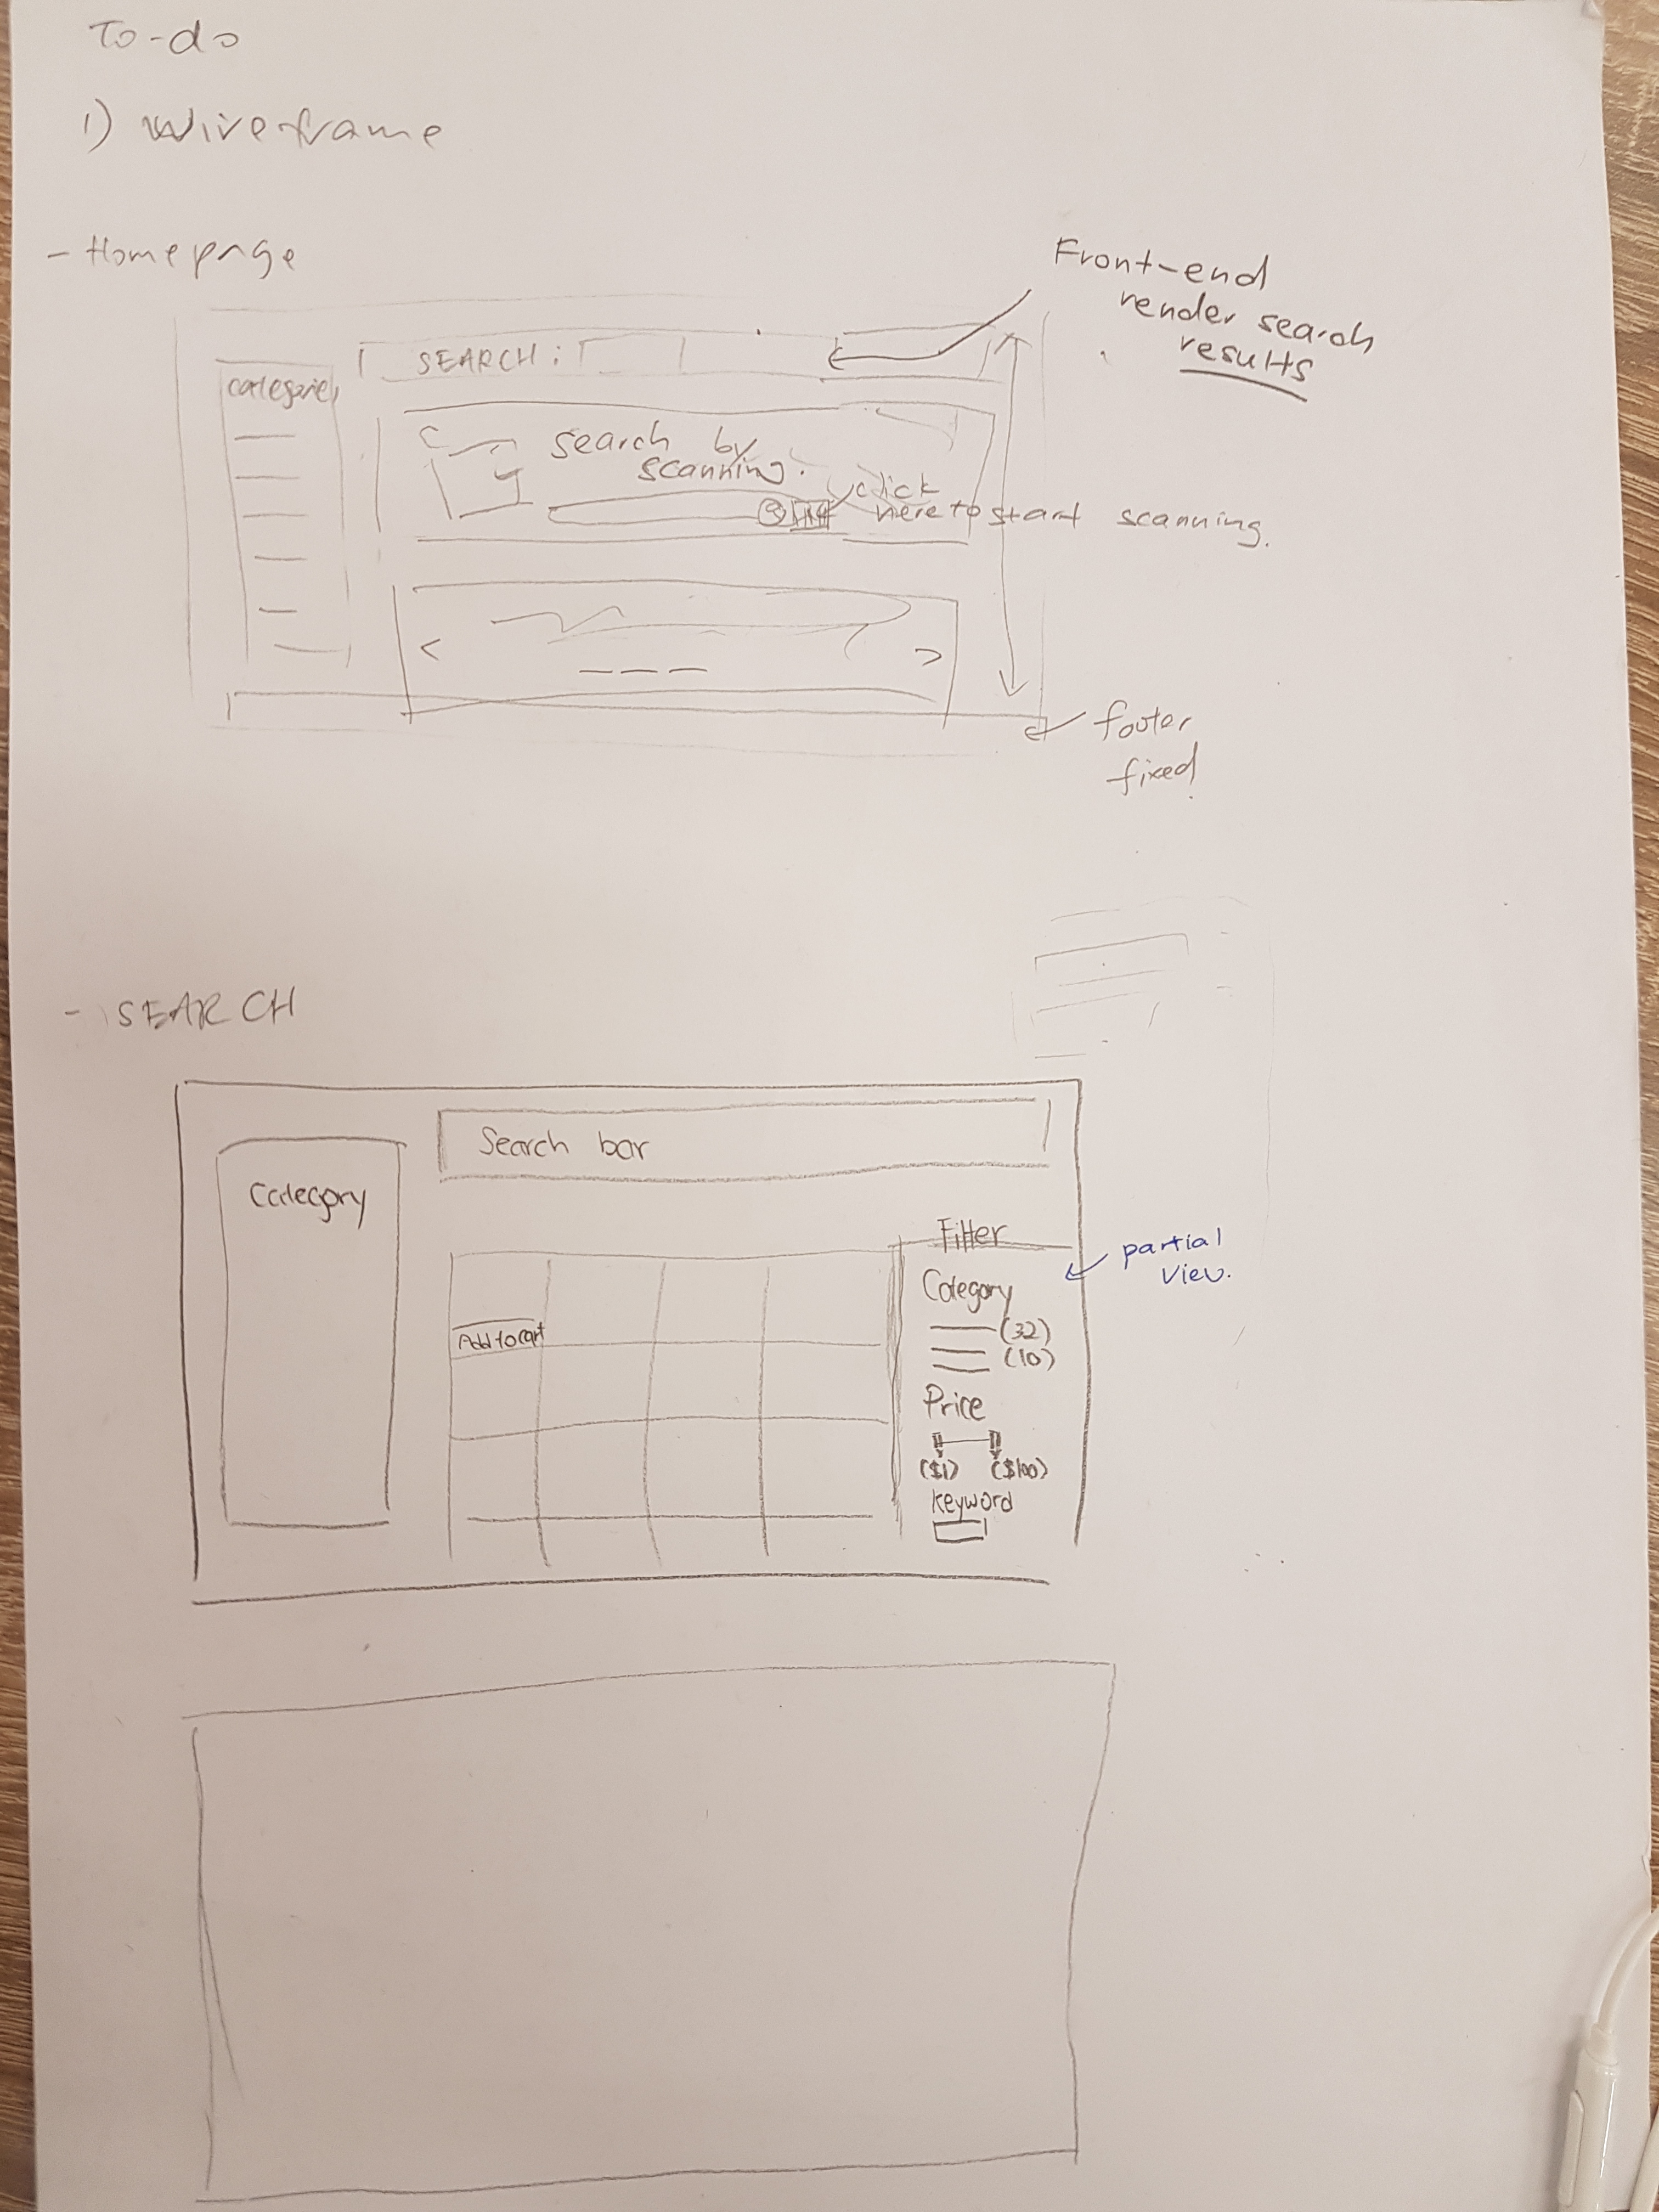 To-do
1) Wireframe
- Homepage
Front-end
render search
results
SEARCH:
categories
search by
scanning.
click
here to start scanning.
<
>
footer
fixed
- SEARCH
Search bar
Category
Filter
partial
view.
Category
(32)
(10)
Add to cart
Price
($1) ($100)
Keyword